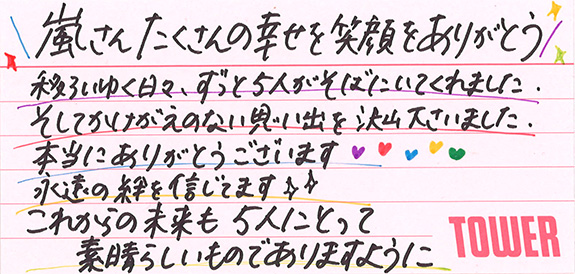 嵐さんたくさんの幸せを笑顔をありがとう
移ろいゆく日々、ずっと5人がそばにいてくれました.
そしてかけがえのない思い出を沢山下さいました.
本当にありがとうございます
永遠の絆を信じてます
これからの未来も 5人にとって
素晴らしいものでありますように
TOWER